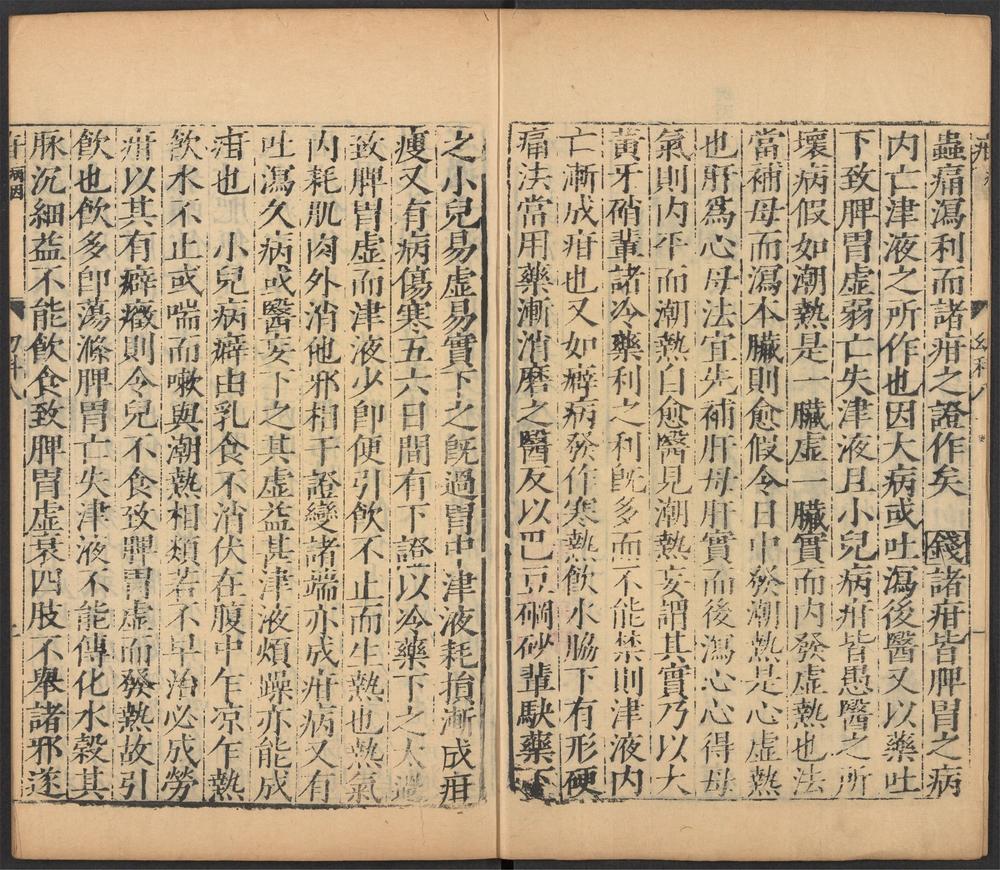 蟲痛瀉利而諸疳之證作矣　錢諸疳皆脾胃之病
内亡津液之所作也因大病或吐瀉後醫又以藥吐
下致脾胃虛弱亡失津液且小兒病疳皆愚醫之所
壞病假如潮熱是一臟虛一臟實而内發虛熱也法
當補母而瀉本臟則愈假令日中發潮熱是心虛熱
也肝爲心母法宜先補肝母肝實而後瀉心心得母
氣則内平而潮熱自愈醫見潮熱妄謂其實乃以大
黃牙硝輩諸冷藥利之利旣多而不能禁則津液内
亡漸成疳也又如癖病發作寒熱飲水脇下有形硬
痛法當用藥漸消磨之醫反以巴豆硇砂輩駃藥下
之小兒易虛易實下之旣過胃中津液耗損漸成疳
瘦又有病傷寒五六日間有下證以冷藥下之太過
致脾胃虛而津液少卽便引飲不止而生熱也熱氣
内耗肌肉外消他邪相干證變諸端亦成疳病又有
吐瀉久病或醫妄下之其虛益甚津液煩躁亦能成
疳也　小兒病癖由乳食不消伏在腹中乍凉乍熱
飲水不止或喘而嗽與潮熱相類若不早治必成勞
疳以其有癖癥則令兒不食致脾胃虛而發熱故引
飲也飲多卽蕩滌脾胃亡失津液不能傳化水穀其
脉沉細益不能飲食致脾胃虛衰四肢不舉諸邪遂
病因